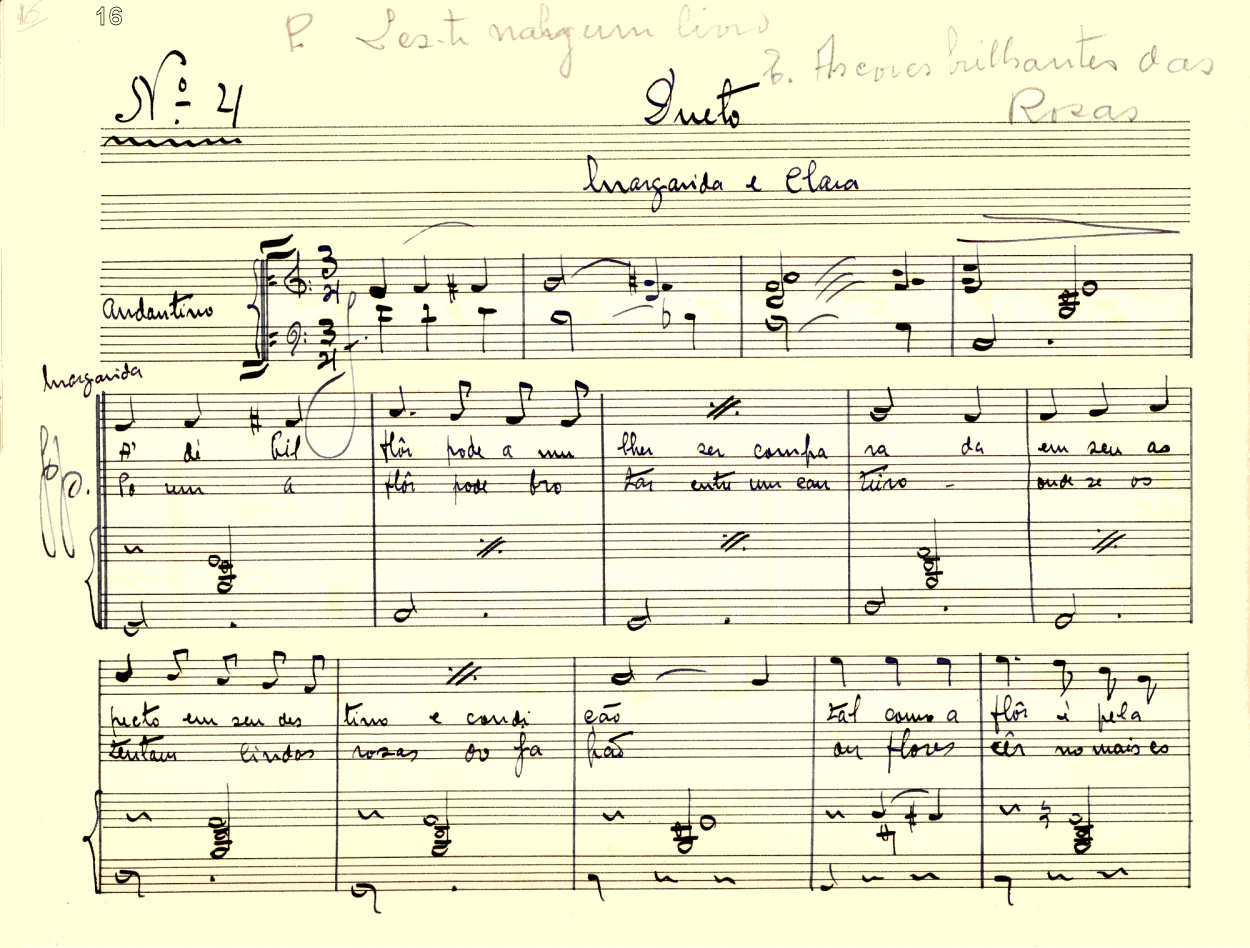 16
P. Les-te nalgum livro
E. As cores brilhantes das
Rosas
Nº 4
Dueto
Margarida e Clara
Andantino
3
4
3
4
Margarida
A' dé bil flôr pode a mu lher ser compa ra da em seu as
Po um a flôr pode bro tar entre um can teiro - onde se os
pp.
pecto em seu des tino e condi ção tal como a flôr é pela
tentam lindas rosas ao fa pão ou flores cêr no mais es